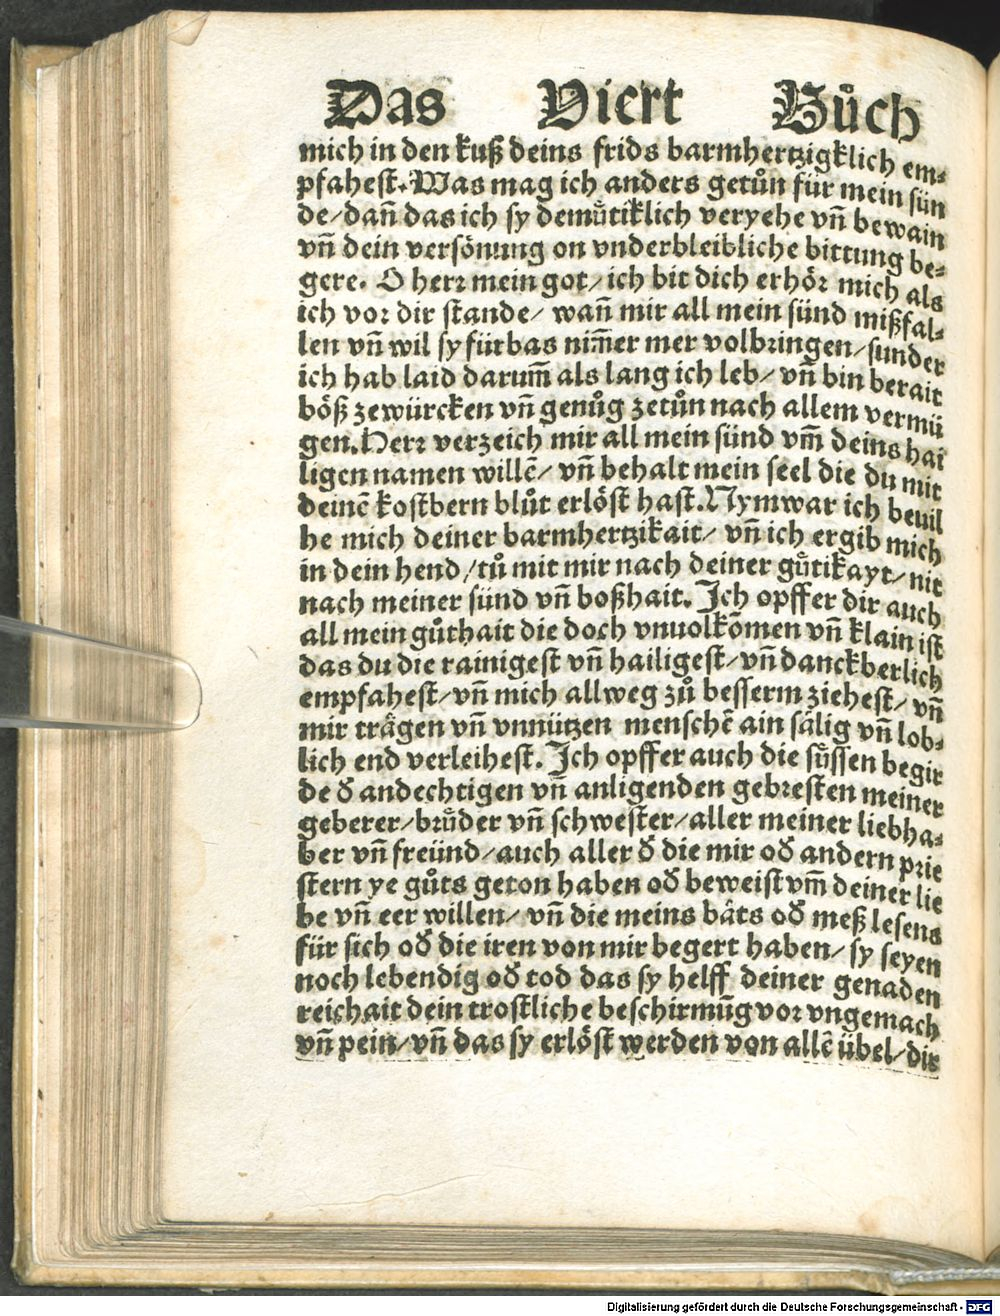 Das Viert Bůch
mich in den kuß deins frids barmhertzigklich em⸗
pfahest. Was mag ich anders getůn für mein sün
de/ dañ das ich sy demůtiklich veryehe vñ bewain
vñ dein versönung on vnderbleibliche bittung be⸗
gere. O herꝛ mein got/ ich bit dich erhöꝛ mich als
ich voꝛ dir stande/ wañ mir all mein sünd mißfal⸗
len vñ wil sy fürbas nim̄er mer volbꝛingen/ sunder
ich hab laid darum̄ als lang ich leb/ vñ bin berait
böß zewürcken vñ genůg zetůn nach allem vermü
gen. Herꝛ verzeich mir all mein sünd vm̄ deins hai
ligen namen willē/ vñ behalt mein seel die du mit
deinē kostbern blůt erlöst hast. Nym war ich beuil
he mich deiner barmhertzikait/ vñ ich ergib mich
in dein hend/ tů mit mir nach deiner gůtikayt/ nit
nach meiner sünd vñ boßhait. Ich opffer dir auch
all mein gůthait die doch vnuolkōmen vñ klain ist
das du die rainigest vñ hailigest/ vñ danckberlich
empfahest/ vñ mich allweg zů besserm ziehest/ vñ
mir trägen vñ vnnützen menschē ain sälig vñ lob⸗
lich end verleihest. Ich opffer auch die sůssen begir
de ď andechtigen vñ anligenden gebꝛesten meiner
geberer/ brůder vñ schwester/ aller meiner liebha⸗
ber vñ freünd/ auch aller ď die mir oď andern pꝛie
stern ye gůts geton haben oď beweist vm̄ deiner lie
be vñ eer willen/ vñ die meins bäts oď meß lesens
für sich oď die iren von mir begert haben/ sy seyen
noch lebendig oď tod das sy helff deiner genaden
reichait dein trostliche beschirmūg voꝛ vngemach
vñ pein/ vñ das sy erlöst werden von allē übel/ dir
Digitalisierung gefördert durch die Deutsche Forschungsgemeinschaft - DFG